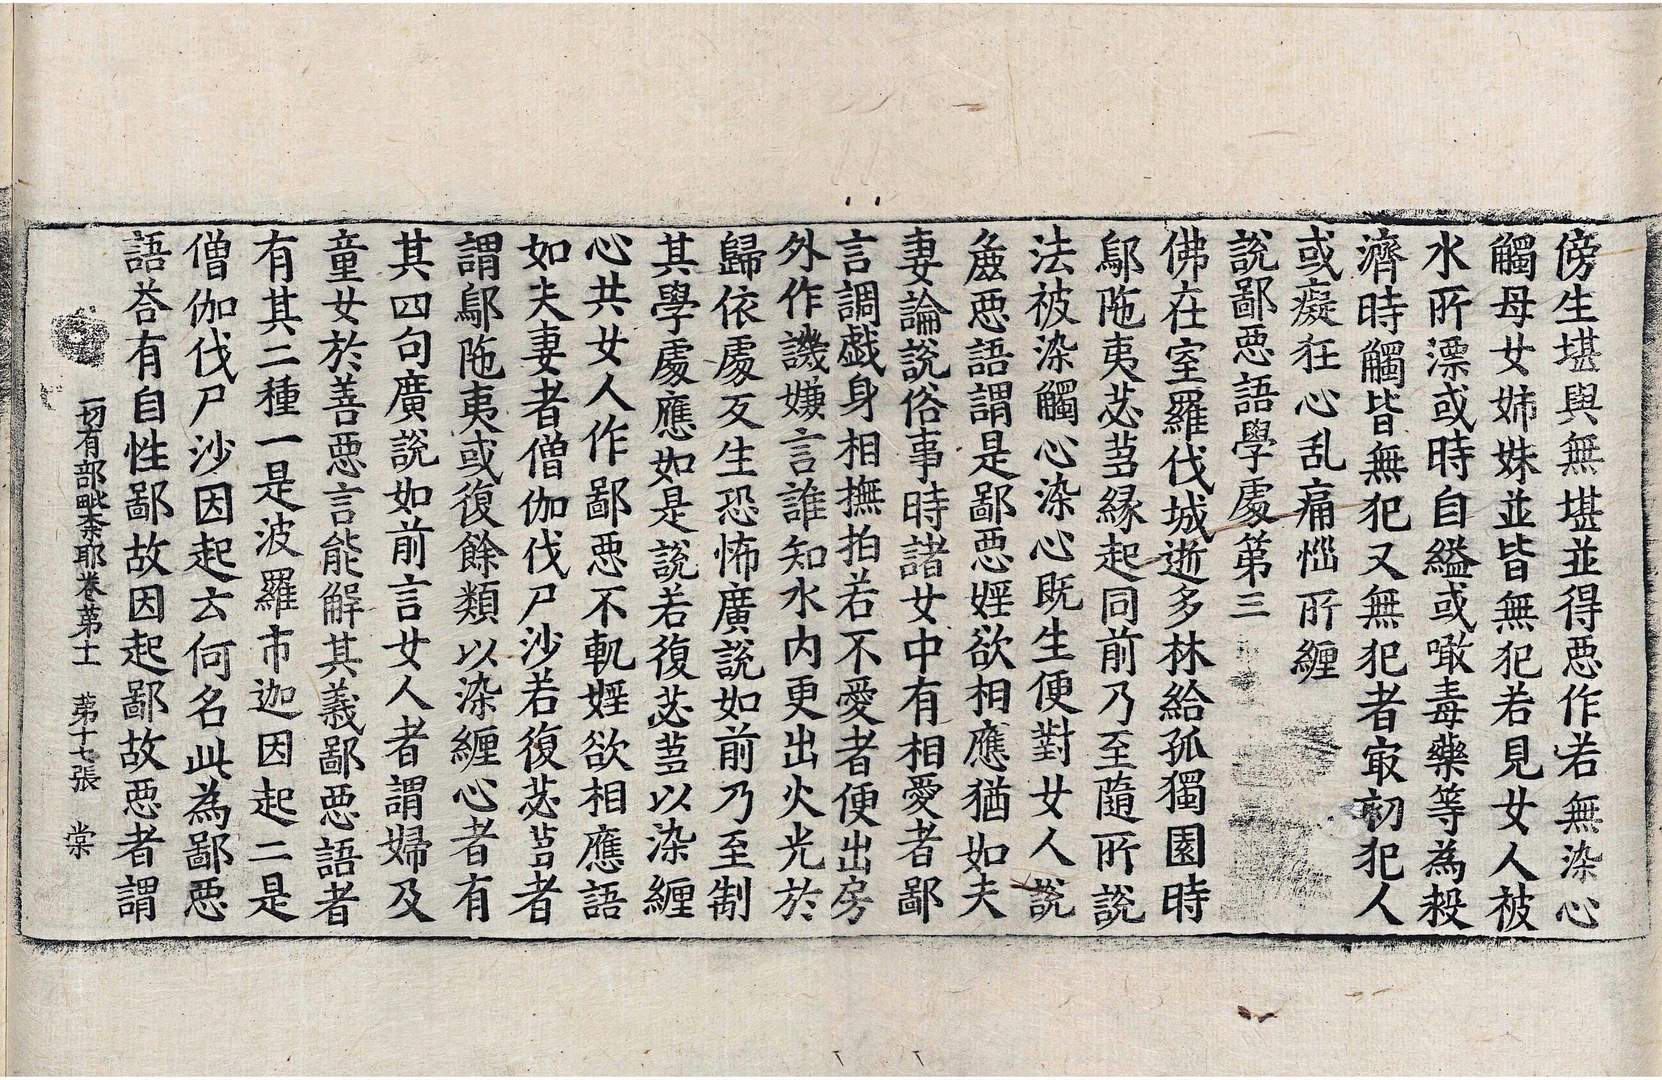 傍生堪與無堪並得惡作若無染心
觸母女姉妹並皆無犯若見女人被
水所漂或時自縊或噉毒藥等為殺
濟時觸皆無犯又無犯者㝡初犯人
或癡狂心乱痛惱所纏
說鄙惡語學處第三
佛在室羅伐城逝多林給孤獨園時
鄔陁夷苾芻緣起同前乃至隨所說
法被染觸心染心既生便對女人說
麁惡語謂是鄙惡婬欲相應猶如夫
妻論說俗事時諸女中有相愛者鄙
言調戲身相撫拍若不愛者便出房
外作譏嫌言誰知水内更出火光於
歸依處反生恐怖廣說如前乃至制
其學處應如是說若復苾芻以染纏
心共女人作鄙惡不軌婬欲相應語
如夫妻者僧伽伐尸沙若復苾芻者
謂鄔陁夷或復餘類以染纏心者有
其四句廣說如前言女人者謂婦及
童女於善惡言能解其義鄙惡語者
有其二種一是波羅市迦因起二是
僧伽伐尸沙因起云何名此為鄙惡
語荅有自性鄙故因起鄙故惡者謂
一切有部毗奈耶卷苐十一　苐十七張　棠